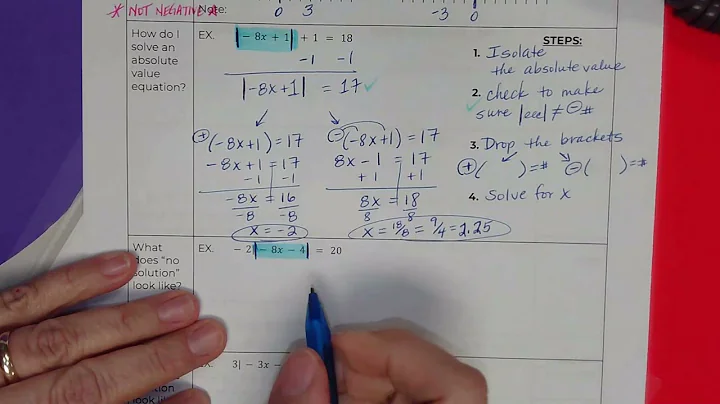 * NOT NEGATIVE *
Note:
0 3
-3 0
How do I
solve an
absolute
value
equation?
EX. |− 8x + 1| + 1 = 18
-1 -1
|-8x+1| = 17 ✓
⊕(-8x+1)=17
-8x+1=17
-1 -1
-8x = 16
-8 -8
x = -2
⊖(-8x+1) = 17
8x - 1 = 17
+1 +1
8x = 18
8 8
x = 18/8 = 9/4 = 2.25
STEPS:
1. Isolate
the absolute value
2. check to make
✓ sure |eee| ≠ ⊖#
3. Drop the brackets
⊕( )=# ⊖( )=#
4. Solve for x
What
does "no
solution"
look like?
EX. − 2|− 8x − 4| = 20
3| − 3x −
look